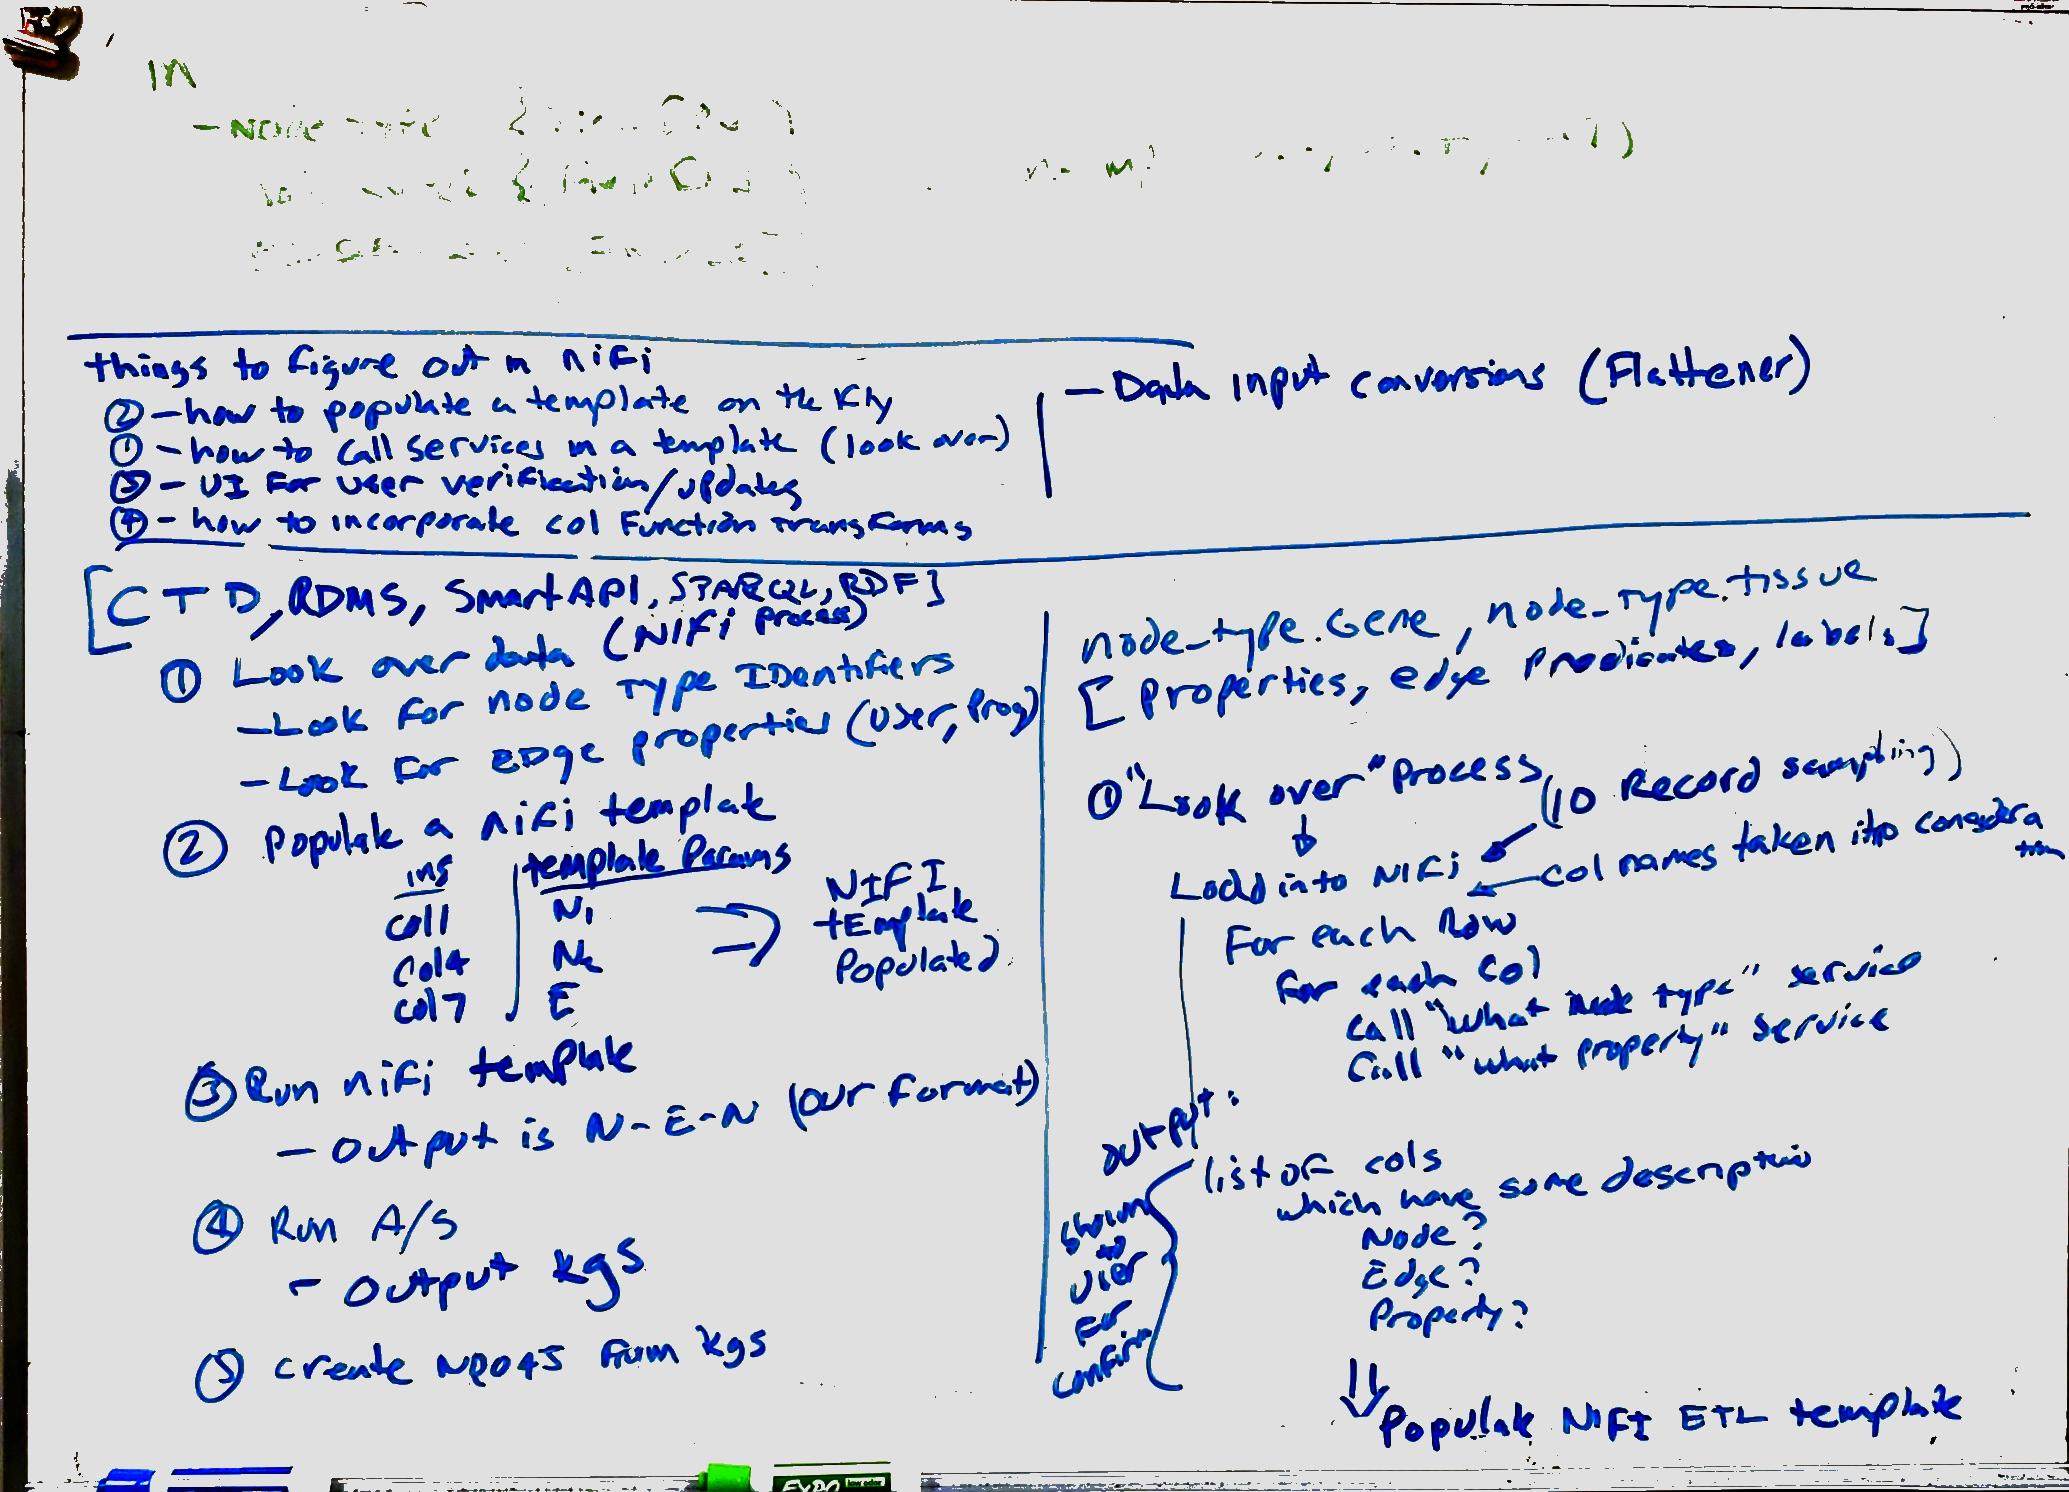 in
- Node type {
things to figure out in nifi
② - how to populate a template on the fly
① - how to call services in a template (look over)
③ - UI for user verification/updates
④ - how to incorporate col Function transforms
- Data input conversions (Flattener)
[CTD, RDMS, SmartAPI, SPARQL, RDF]
① Look over data (NIFI process)
- Look for node type IDentifiers
- Look for EDge properties (User, Prog)
② Populate a nifi template
ins template Params
col1 N1
col4 N2
col7 E
NIFI
tEmplate
Populated
③ Run nifi template
- Output is N-E-N (our format)
④ Run A/S
- Output kgs
⑤ create Neo4J from kgs
node_type.Gene, node_type.tissue
[Properties, edge predicates, labels]
① "Look over" Process (10 Record sampling)
Load into NIFI
col names taken into considera
tion
For each Row
for each Col
call "what node type" service
Call "what property" service
output:
list of cols
which have some description
Node?
Edge?
Property?
shown
to
User
For
confirm
Populate NIFI ETL template
EXPO